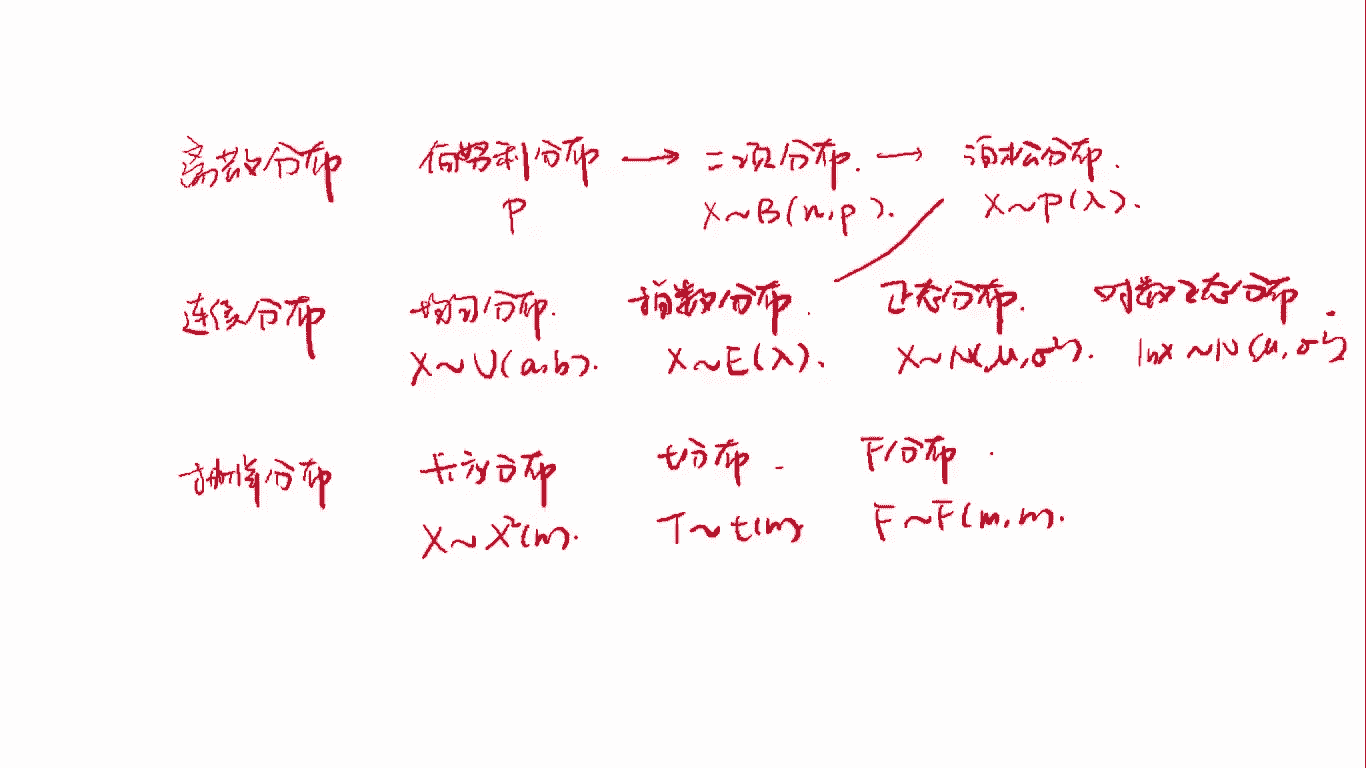 离散分布 伯努利分布 → 二项分布. → 泊松分布.
P X~B(n,p). X~P(λ).
连续分布 均匀分布. 指数分布. 正态分布. 对数正态分布.
X~U(a,b). X~E(λ). X~N(μ,σ²). lnx~N(μ,σ²)
抽样分布 卡方分布 t分布. F分布.
X~X²(n). T~t(n) F~F(m,n).